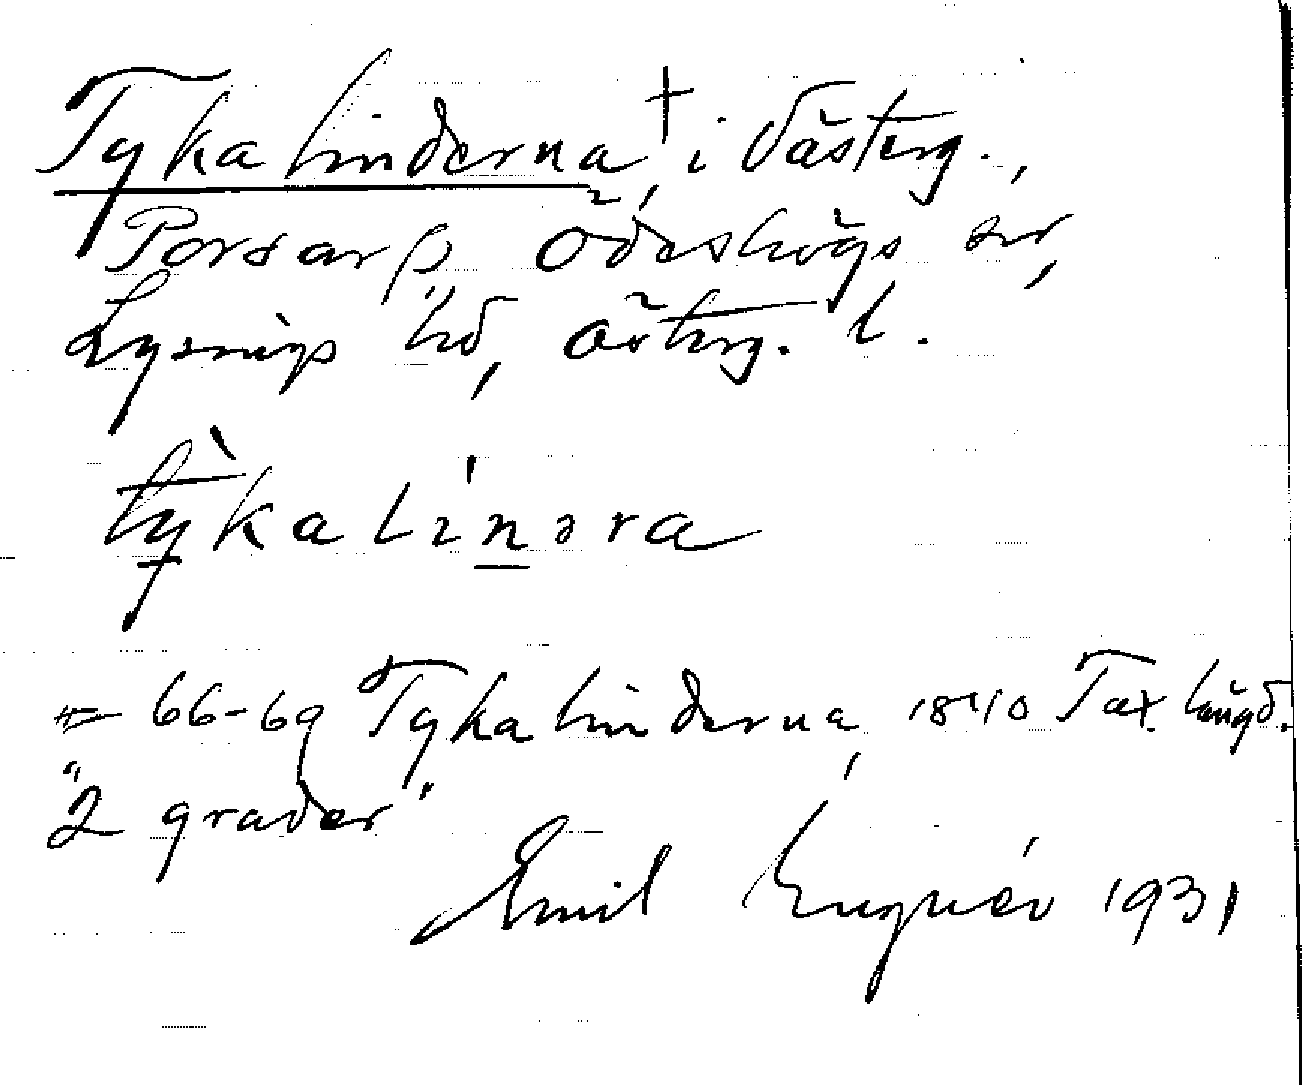 Tykalinderna, † i Västerg.,
Porsarp, Ödeshögs sn,
Lysings hd, Österg. l.
tỳkalìnəra
= 66-69 Tykalinderna, 1840 Tax. längd.
"2 grader"
Emil 1931